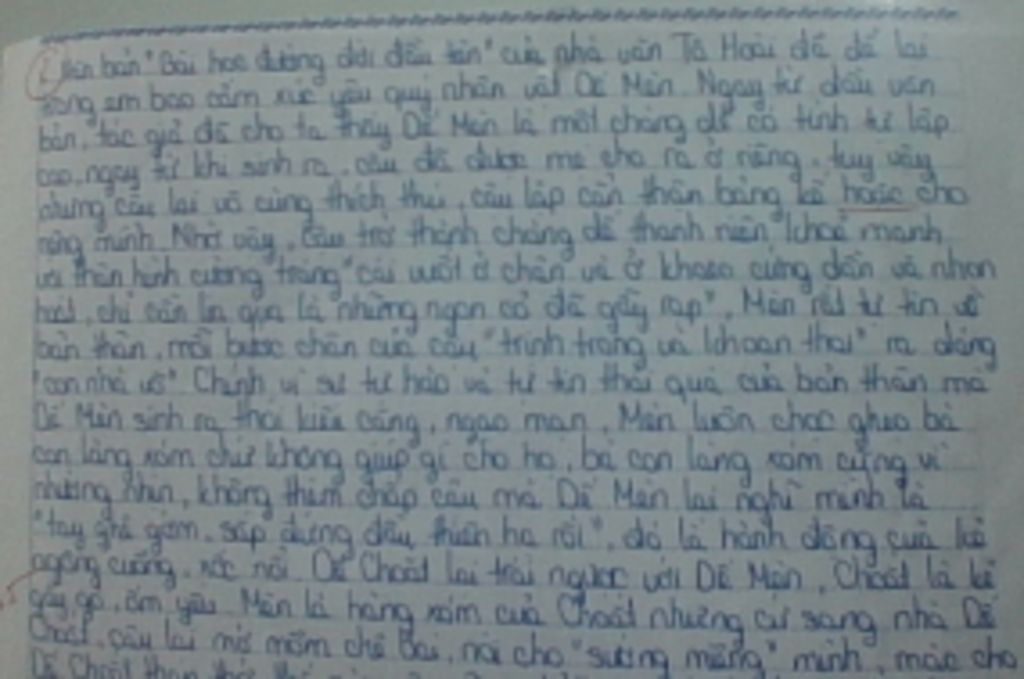 văn bản "Bài học đường đời đầu tiên" của nhà văn Tô Hoài đã để lại
trong em bao cảm xúc yêu quý nhân vật Dế Mèn. Ngay từ đầu văn
bản, tác giả đã cho ta thấy Dế Mèn là một chàng dế có tính tự lập
cao, ngay từ khi sinh ra, cậu đã được mẹ cho ra ở riêng, tuy vậy
nhưng cậu lại vô cùng thích thú, cậu lập cẩn thận bảng kê hoặc cho
riêng mình. Nhờ vậy, cậu trở thành chàng dế thanh niên khoẻ mạnh
với thân hình cường tráng "cái vuốt ở chân và ở khoeo cứng dần và nhọn
hoắt, chỉ cần lia qua là những ngọn cỏ đã gẫy rạp". Mèn rất tự tin về
bản thân, mỗi bước chân của cậu "trịnh trọng và khoan thai" ra dáng
"con nhà võ" Chính vì sự tự hào và tự tin thái quá của bản thân mà
Dế Mèn sinh ra thói kiêu căng, ngạo mạn. Mèn luôn chọc ghẹo bà
con làng xóm chứ không giúp gì cho họ, bà con làng xóm cũng vì
nhường nhịn, không thèm chấp cậu mà Dế Mèn lại nghĩ mình là
"tay ghê gớm, sắp đứng đầu thiên hạ rồi", đó là hành động của kẻ
ngông cuồng, xốc nổi. Dế Choắt lại trái ngược với Dế Mèn, Choắt là kẻ
gầy gò, ốm yếu. Mèn là hàng xóm của Choắt nhưng cứ sang nhà Dế
Choắt, cậu lại mở mồm chê bai, nói cho "sướng miệng" mình, mặc cho
Dế Choắt than thở